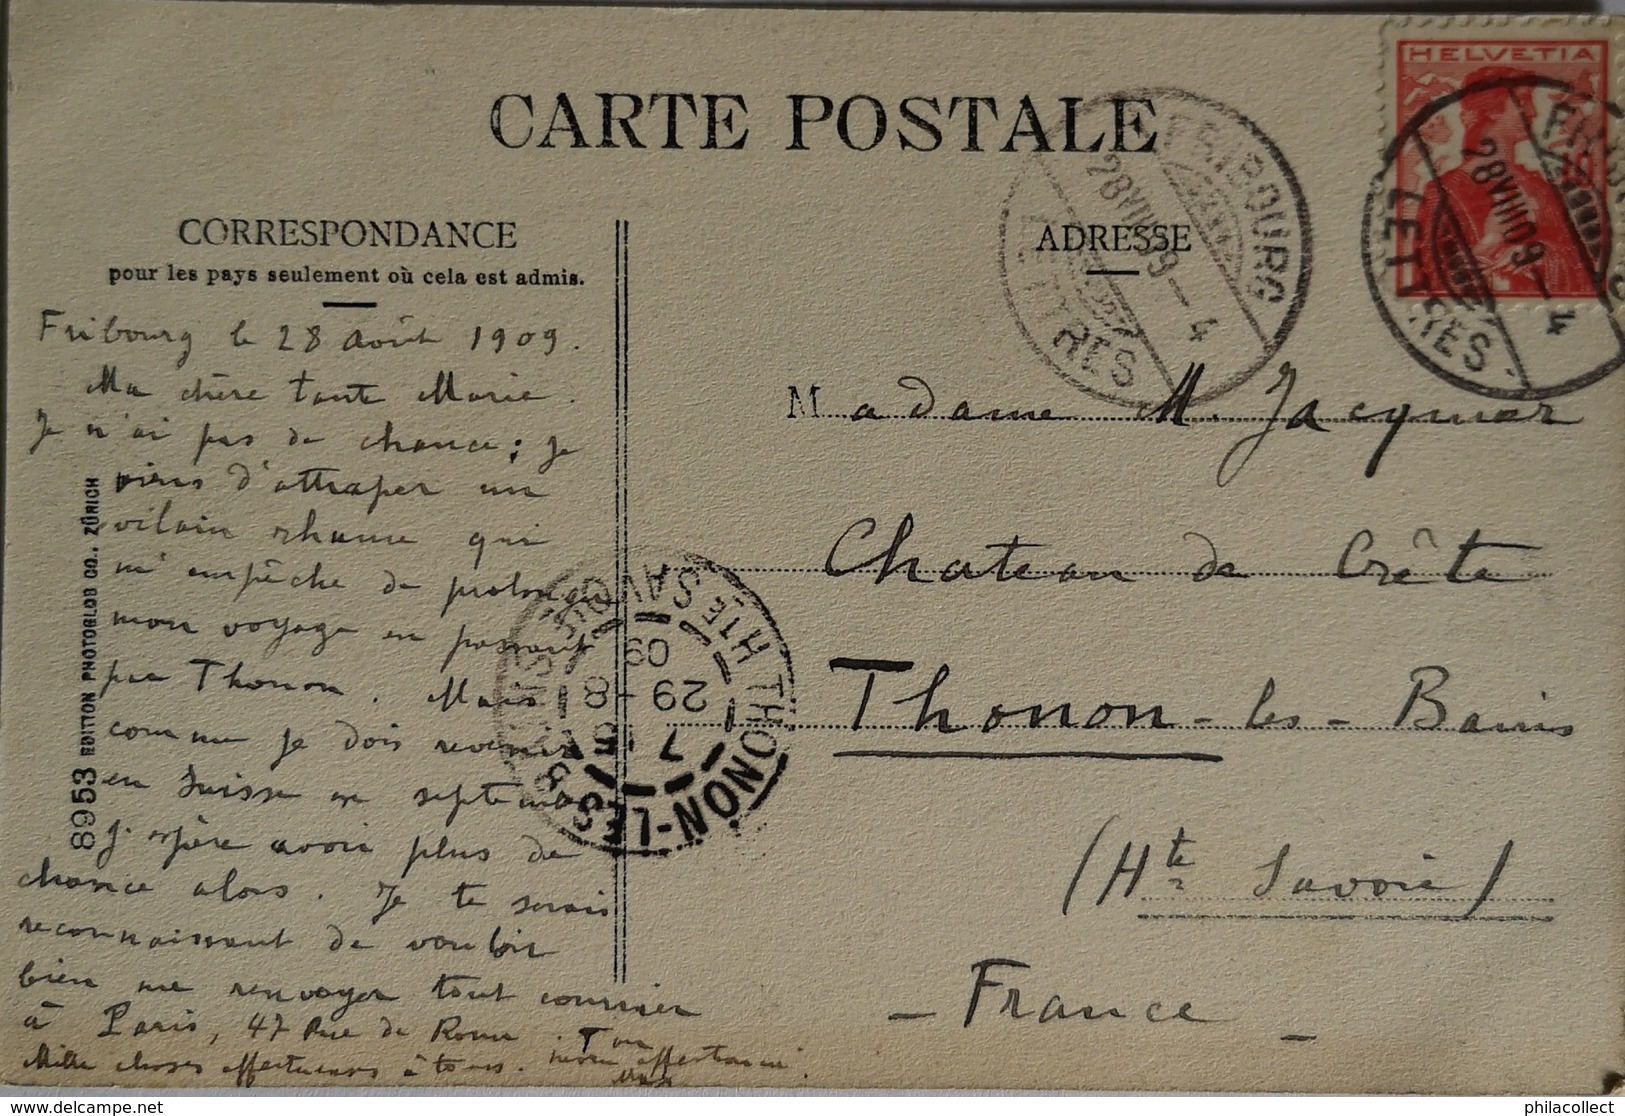 CARTE POSTALE
CORRESPONDANCE
pour les pays seulement où cela est admis.
ADRESSE
HELVETIA
FRIBOURG
28 VIII 09 — 4
LETTRES
FRIBOURG
28 VIII 09 — 4
LETTRES
Fribourg le 28 Août 1909.
Ma chère tante Marie.
Je n'ai pas de chance; je
viens d'attraper un
vilain rhume qui
m'empêche de prolonger
mon voyage en passant
par Thonon. Mais
comme je dois revenir
en Suisse en septembre
j'espère avoir plus de
chance alors. Je te serais
reconnaissant de vouloir
bien me renvoyer tout courrier
à Paris, 47 Rue de Rome. Ton
Mille choses affectueuses à tous.
Madame M. Jacquier
Chateau de Crête
Thonon-les-Bains
(Hte Savoie)
- France -
THONON-LES-BAINS
HTE SAVOIE
7
29-8
09
8953 EDITION PHOTOGLOB CO., ZÜRICH
philacollect